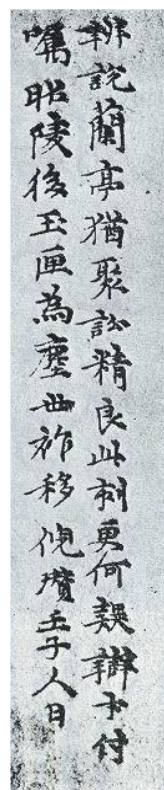 辨說蘭亭猶聚訟精良此刻更何疑辯才付
囑昭陵後玉匣為塵世祚移倪瓚壬子人日